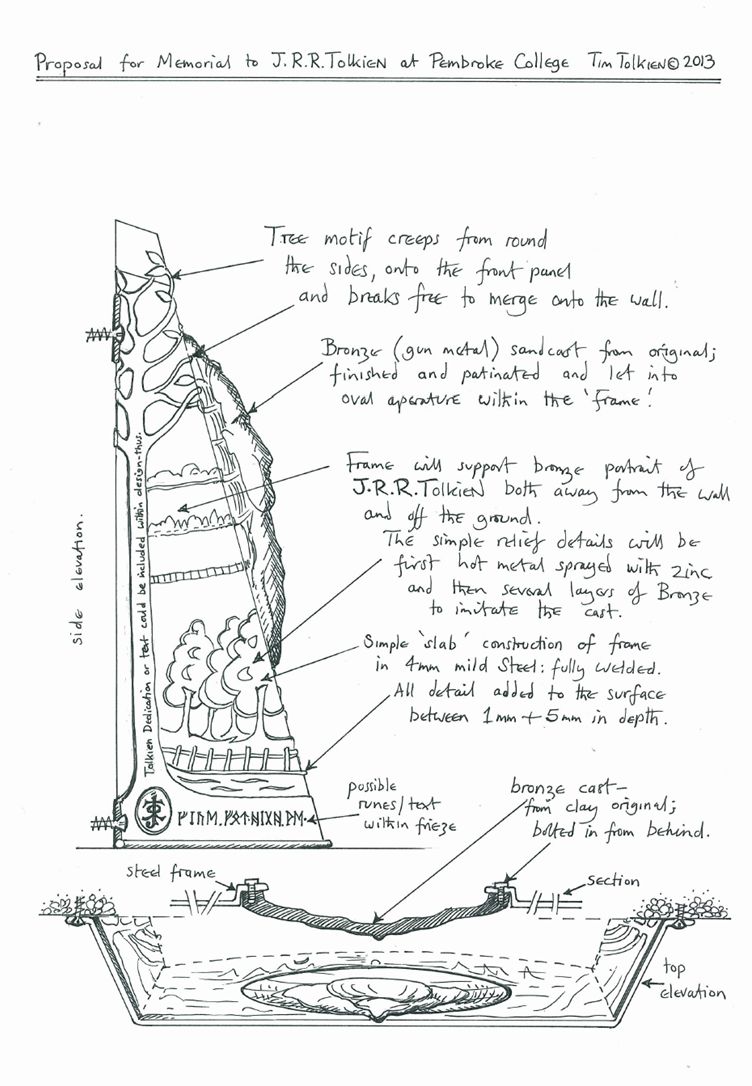 Proposal for Memorial to J.R.R.Tolkien at Pembroke College Tim Tolkien © 2013
Tree motif creeps from round
the sides, onto the front panel
and breaks free to merge onto the wall.
Bronze (gun metal) sandcast from original;
finished and patinated and let into
oval aperature within the 'frame'.
Frame will support bronze portrait of
J.R.R.Tolkien both away from the wall
and off the ground.
The simple relief details will be
first hot metal sprayed with zinc
and then several layers of Bronze
to imitate the cast.
Simple 'slab' construction of frame
in 4mm mild Steel: fully welded.
All detail added to the surface
between 1mm + 5mm in depth.
side elevation.
Tolkien Dedication or text could be included within design-thus.
possible
runes/text
within frieze
bronze cast-
from clay original;
bolted in from behind.
steel frame
section
top
elevation